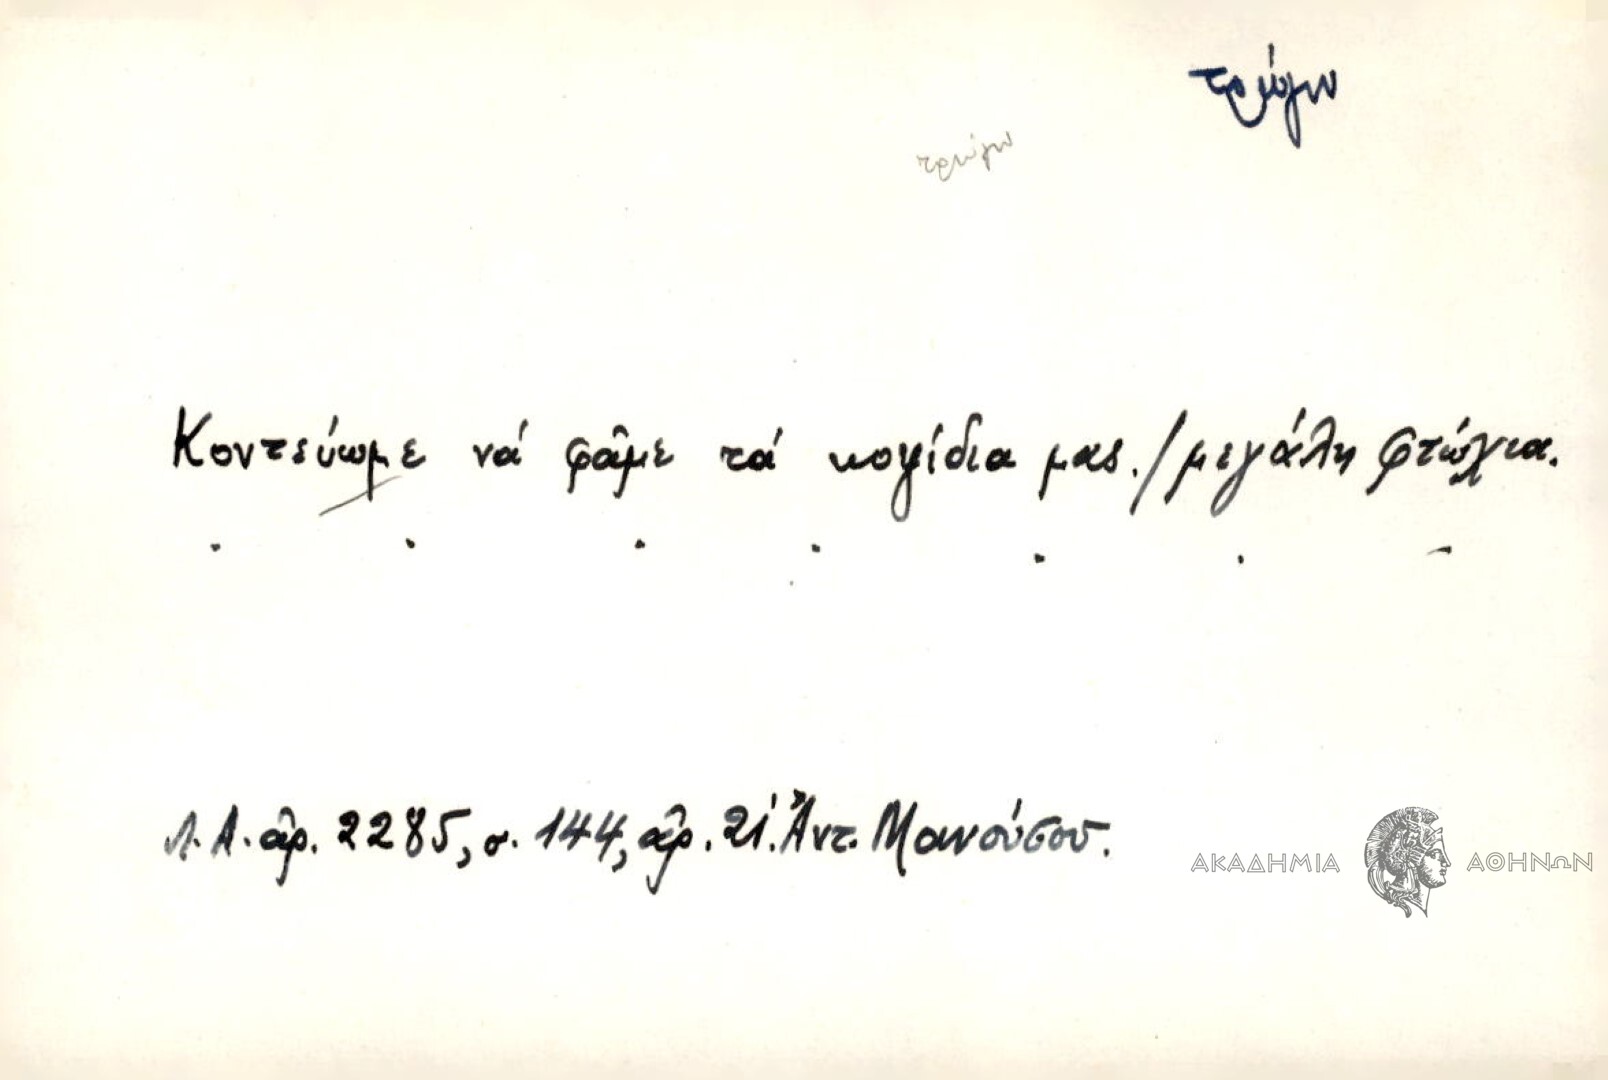 τρώγω
τρώγω
Κοντεύωμε νά φᾶμε τά κοψίδια μας./μεγάλη φτώχια.
Λ.Α. ἀρ. 2285, σ. 144, ἀρ. 21. Ἀντ. Μανούσου.
ΑΚΑΔΗΜΙΑ ΑΘΗΝΩΝ